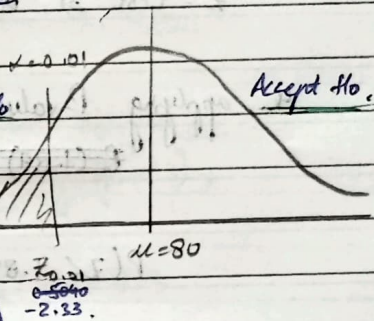 α = 0.01
Accept H₀.
μ = 80
Z₀.₀₁
0.5040
-2.33.